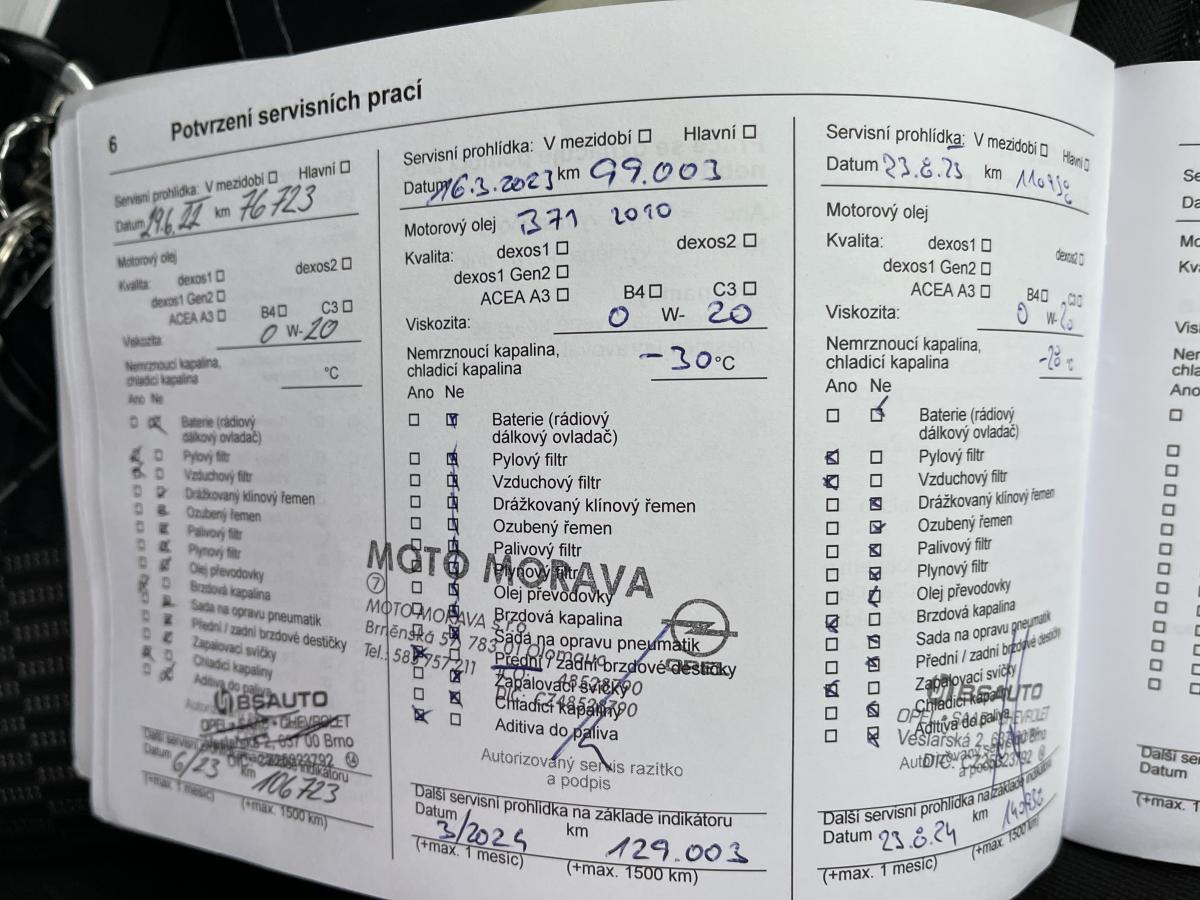 6 Potvrzení servisních prací
Servisní prohlídka: V mezidobí Hlavní
Datum 29.6.22 km 76723
Motorový olej
Kvalita: dexos1 dexos2
dexos1 Gen2
ACEA A3 B4 C3
Viskozita: 0 W-20
Nemrznoucí kapalina,
chladicí kapalina °C
Ano Ne
Baterie (rádiový
dálkový ovladač)
Pylový filtr
Vzduchový filtr
Drážkovaný klínový řemen
Ozubený řemen
Palivový filtr
Plynový filtr
Olej převodovky
Brzdová kapalina
Sada na opravu pneumatik
Přední / zadní brzdové destičky
Zapalovací svíčky
Chladicí kapaliny
Aditiva do paliva
BSAUTO
OPEL • SAAB • CHEVROLET
Veslařská 2, 637 00 Brno
Další servisní prohlídka na základě indikátoru
Datum 6/23 km 106723
(+max. 1 měsíc) (+max. 1500 km)
Servisní prohlídka: V mezidobí Hlavní
Datum 16.3.2023 km 99.003
Motorový olej B71 2010
Kvalita: dexos1 dexos2
dexos1 Gen2
ACEA A3 B4 C3
Viskozita: 0 W- 20
Nemrznoucí kapalina,
chladicí kapalina -30 °C
Ano Ne
Baterie (rádiový
dálkový ovladač)
Pylový filtr
Vzduchový filtr
Drážkovaný klínový řemen
Ozubený řemen
Palivový filtr
Plynový filtr
Olej převodovky
Brzdová kapalina
Sada na opravu pneumatik
Přední / zadní brzdové destičky
Zapalovací svíčky
Chladicí kapaliny
Aditiva do paliva
MOTO MORAVA
7 MOTO MORAVA s.r.o.
Brněnská 57, 783 01 Olomouc
Tel.: 585 757 211
DIČ: CZ48528790
OPEL
Autorizovaný servis razítko
a podpis
Další servisní prohlídka na základě indikátoru
Datum 3/2024 km 129.003
(+max. 1 měsíc) (+max. 1500 km)
Servisní prohlídka: V mezidobí Hlavní
Datum 23.8.23 km
Motorový olej
Kvalita: dexos1 dexos2
dexos1 Gen2
ACEA A3 B4 C3
Viskozita: 0 W-20
Nemrznoucí kapalina,
chladicí kapalina -28 °C
Ano Ne
Baterie (rádiový
dálkový ovladač)
Pylový filtr
Vzduchový filtr
Drážkovaný klínový řemen
Ozubený řemen
Palivový filtr
Plynový filtr
Olej převodovky
Brzdová kapalina
Sada na opravu pneumatik
Přední / zadní brzdové destičky
Zapalovací svíčky
Chladicí kapaliny
Aditiva do paliva
BSAUTO
OPEL • SAAB • CHEVROLET
Veslařská 2, 637 00 Brno
Další servisní prohlídka na základě indikátoru
Datum 23.8.24 km
(+max. 1 měsíc) (+max. 1500 km)
Další se
Datum
(+max. 1